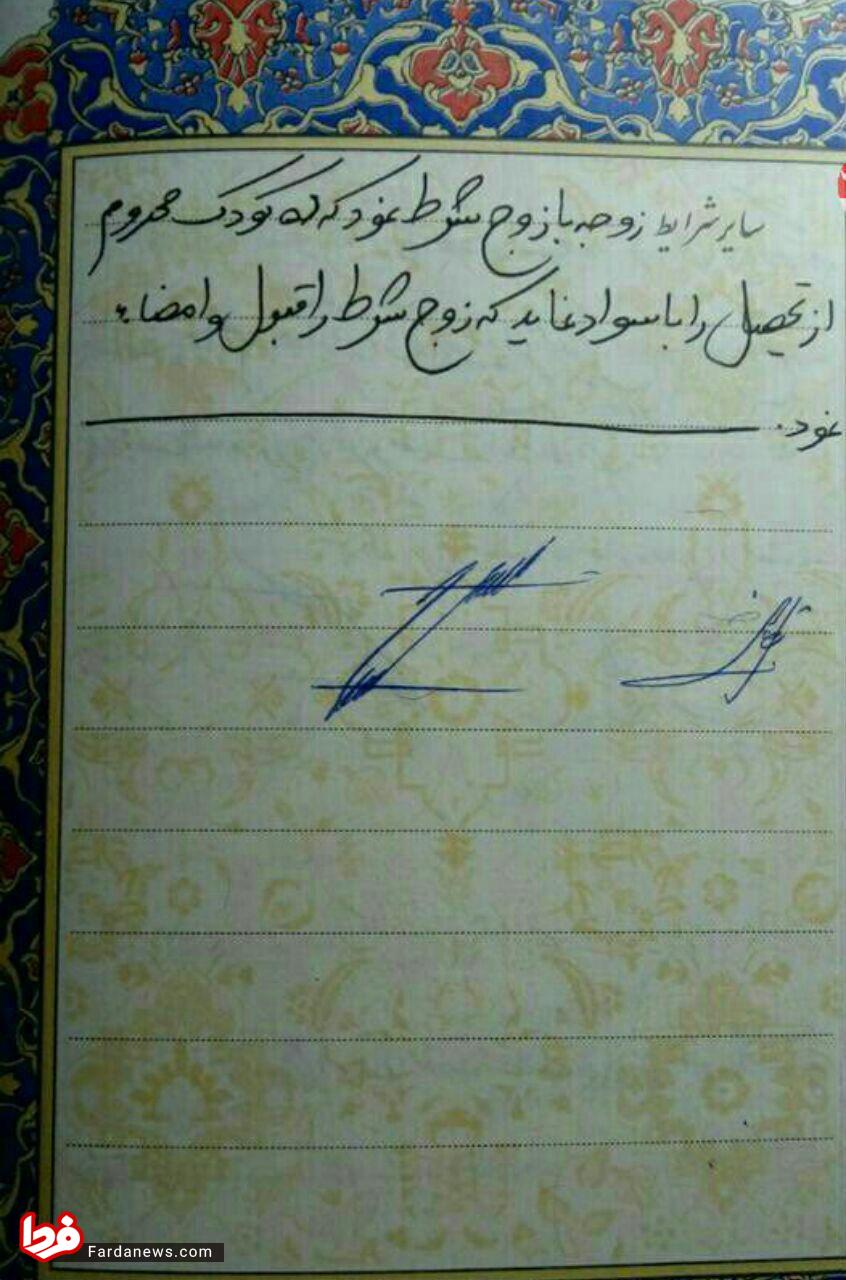 سایر شرایط زوجه با زوج شرط نمود که ۵ کودک محروم
از تحصیل را باسواد نماید که زوج شرط را قبول و امضاء
نمود.
فردا
Fardanews.com